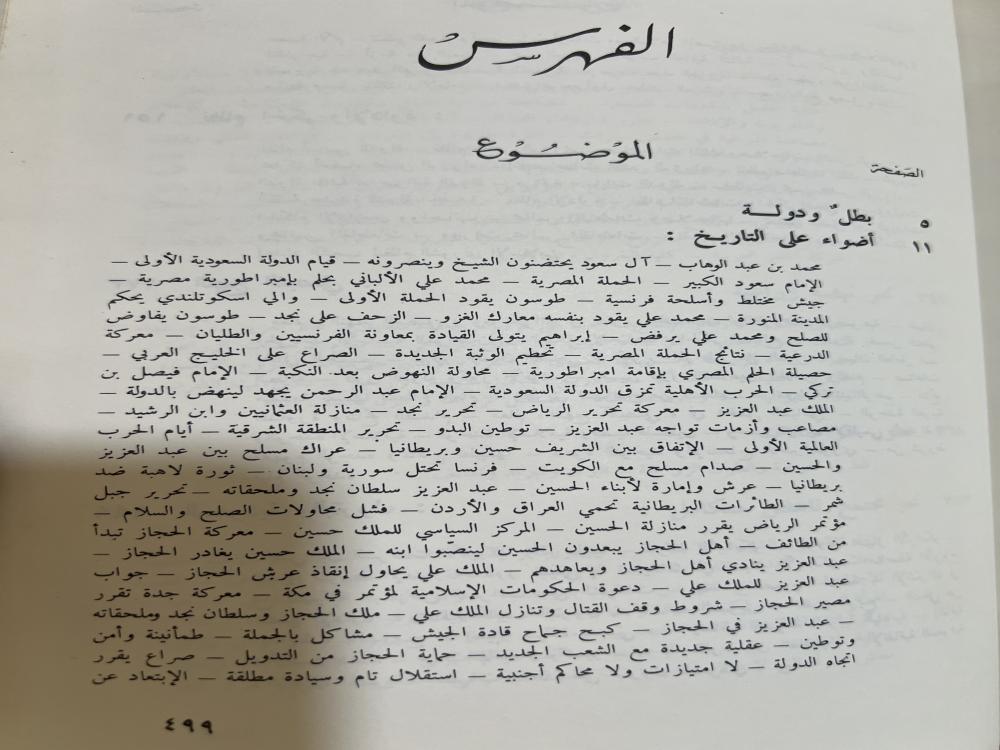 الفهرس
الموضوع
الصفحة
بطلٌ ودولة ٥
أضواء على التاريخ : ١١
محمد بن عبد الوهاب – آل سعود يحتضنون الشيخ وينصرونه – قيام الدولة السعودية الأولى –
الإمام سعود الكبير – الحملة المصرية – محمد علي الألباني يحلم بإمبراطورية مصرية –
جيش مختلط وأسلحة فرنسية – طوسون يقود الحملة الأولى – والي اسكوتلندي يحكم
المدينة المنورة – محمد علي يقود بنفسه معارك الغزو – الزحف على نجد – طوسون يفاوض
للصلح ومحمد علي يرفض – إبراهيم يتولى القيادة بمعاونة الفرنسيين والطليان – معركة
الدرعية – نتائج الحملة المصرية – تحطيم الوثبة الجديدة – الصراع على الخليج العربي –
حصيلة الحلم المصري بإقامة امبراطورية – محاولة النهوض بعد النكبة – الإمام فيصل بن
تركي – الحرب الأهلية تمزق الدولة السعودية – الإمام عبد الرحمن يجهد لينهض بالدولة –
الملك عبد العزيز – معركة تحرير الرياض – تحرير نجد – منازلة العثمانيين وابن الرشيد –
مصاعب وأزمات تواجه عبد العزيز – توطين البدو – تحرير المنطقة الشرقية – أيام الحرب
العالمية الأولى – الإتفاق بين الشريف حسين وبريطانيا – عراك مسلح بين عبد العزيز
والحسين – صدام مسلح مع الكويت – فرنسا تحتل سورية ولبنان – ثورة لاهبة ضد
بريطانيا – عرش وإمارة لأبناء الحسين – عبد العزيز سلطان نجد وملحقاته – تحرير جبل
شمر – الطائرات البريطانية تحمي العراق والأردن – فشل محاولات الصلح والسلام –
مؤتمر الرياض يقرر منازلة الحسين – المركز السياسي للملك حسين – معركة الحجاز تبدأ
من الطائف – أهل الحجاز يبعدون الحسين لينصبوا ابنه – الملك حسين يغادر الحجاز –
عبد العزيز ينادي أهل الحجاز ويعاهدهم – الملك علي يحاول إنقاذ عرش الحجاز – جواب
عبد العزيز للملك علي – دعوة الحكومات الإسلامية لمؤتمر في مكة – معركة جدة تقرر
مصير الحجاز – شروط وقف القتال وتنازل الملك علي – ملك الحجاز وسلطان نجد وملحقاته
– عبد العزيز في الحجاز – كبح جماح قادة الجيش – مشاكل بالجملة – طمأنينة وأمن
وتوطين – عقلية جديدة مع الشعب الجديد – حماية الحجاز من التدويل – صراع يقرر
اتجاه الدولة – لا امتيازات ولا محاكم أجنبية – استقلال تام وسيادة مطلقة – الإبتعاد عن
٤٩٩